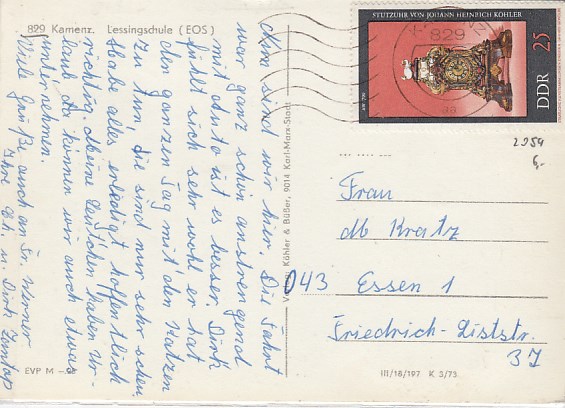 829 Kamenz. Lessingschule (EOS)
Nun sind wir hier. Die Fahrt
war ganz schön anstrengend
mit Auto ist es besser. Dirk
fühlt sich sehr wohl er hat
den ganzen Tag mit den Katzen
zu tun. die sind nur sehr scheu.
Habe alles erledigt hoffentlich
richtig. Meine Leutchen haben Ur-
laub da können wir auch etwas
unternehmen.
Viele Grüße auch an Fr. Werner
Ihre Ch. u. Dirk
EVP M
Verlag Köhler & Büßer, 9014 Karl-Marx-Stadt
STUTZUHR VON JOHANN HEINRICH KÖHLER
DDR 25
829
2959
6,-
Frau
db Kratz
043 Essen 1
Friedrich-Liststr.
37
III/18/197 K 3/73